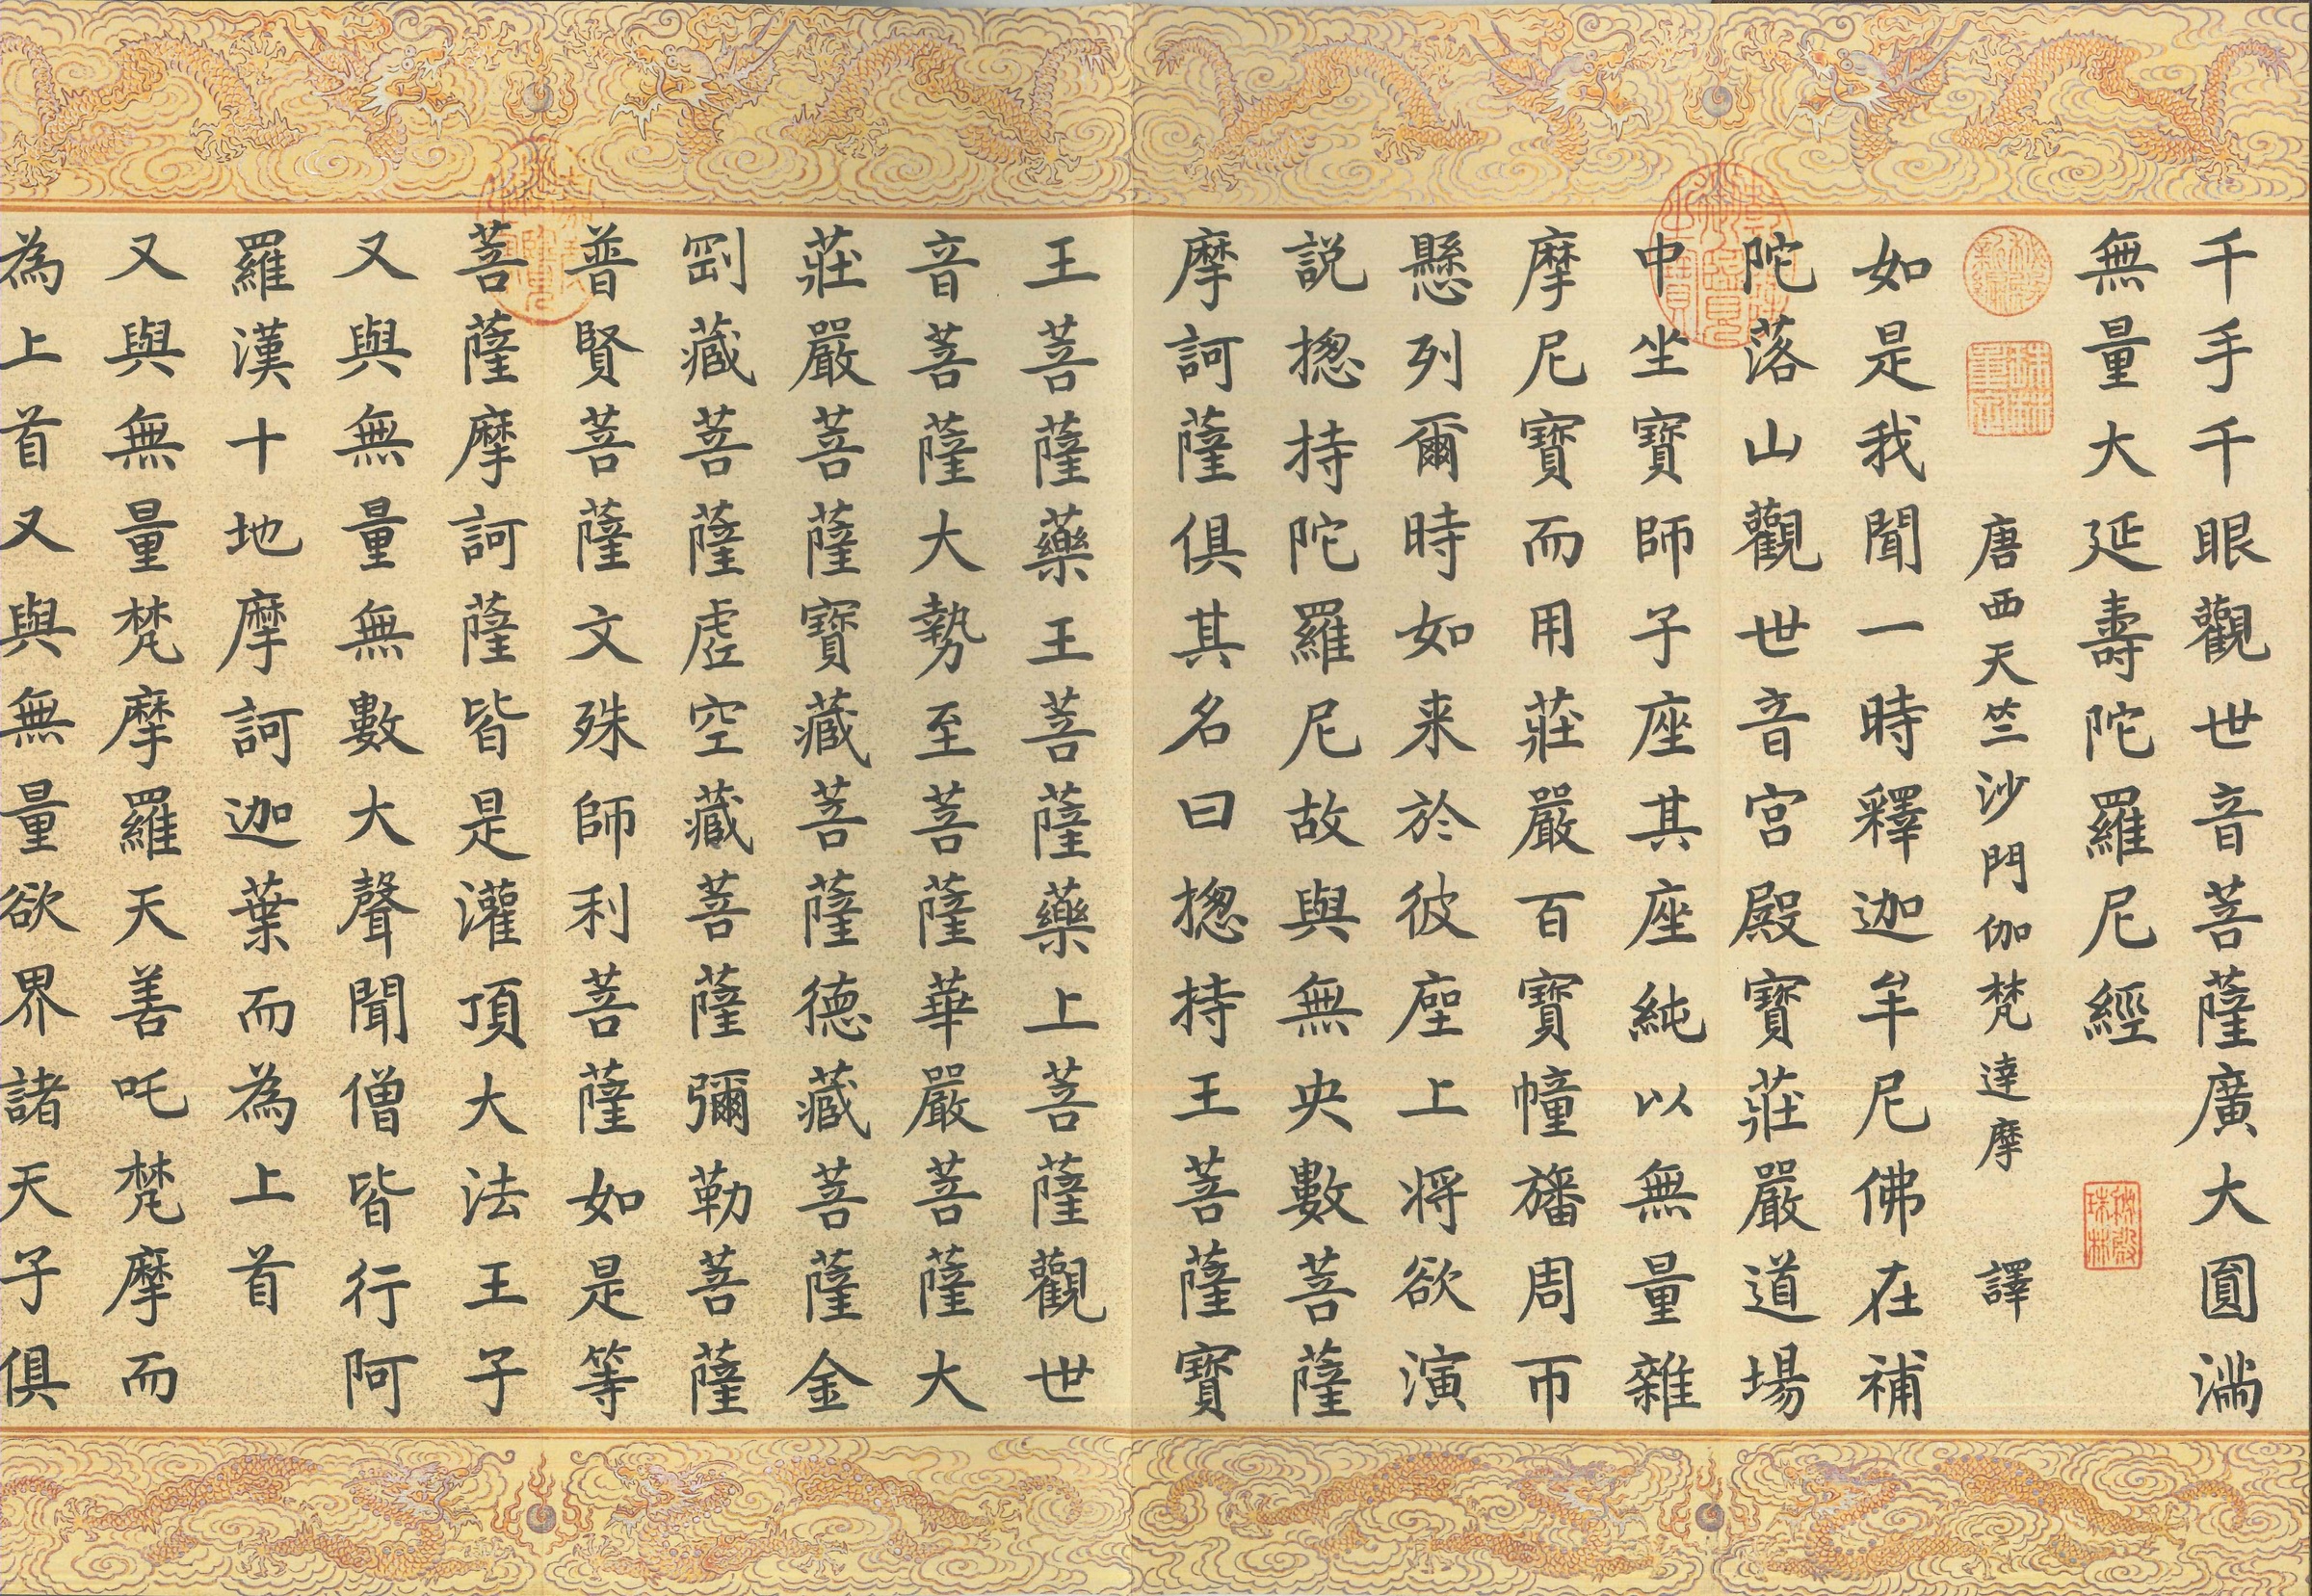 千手千眼觀世音菩薩廣大圓滿
無量大延壽陀羅尼經
唐西天竺沙門伽梵達摩 譯
如是我聞一時釋迦牟尼佛在補
陀落山觀世音宮殿寶莊嚴道場
中坐寶師子座其座純以無量雜
摩尼寶而用莊嚴百寶幢旛周帀
懸列爾時如来於彼座上将欲演
説揔持陀羅尼故與無央數菩薩
摩訶薩俱其名曰揔持王菩薩寶
王菩薩藥王菩薩藥上菩薩觀世
音菩薩大勢至菩薩華嚴菩薩大
莊嚴菩薩寶藏菩薩德藏菩薩金
剛藏菩薩虛空藏菩薩彌勒菩薩
普賢菩薩文殊師利菩薩如是等
菩薩摩訶薩皆是灌頂大法王子
又與無量無數大聲聞僧皆行阿
羅漢十地摩訶迦葉而為上首
又與無量梵摩羅天善吒梵摩而
為上首又與無量欲界諸天子俱